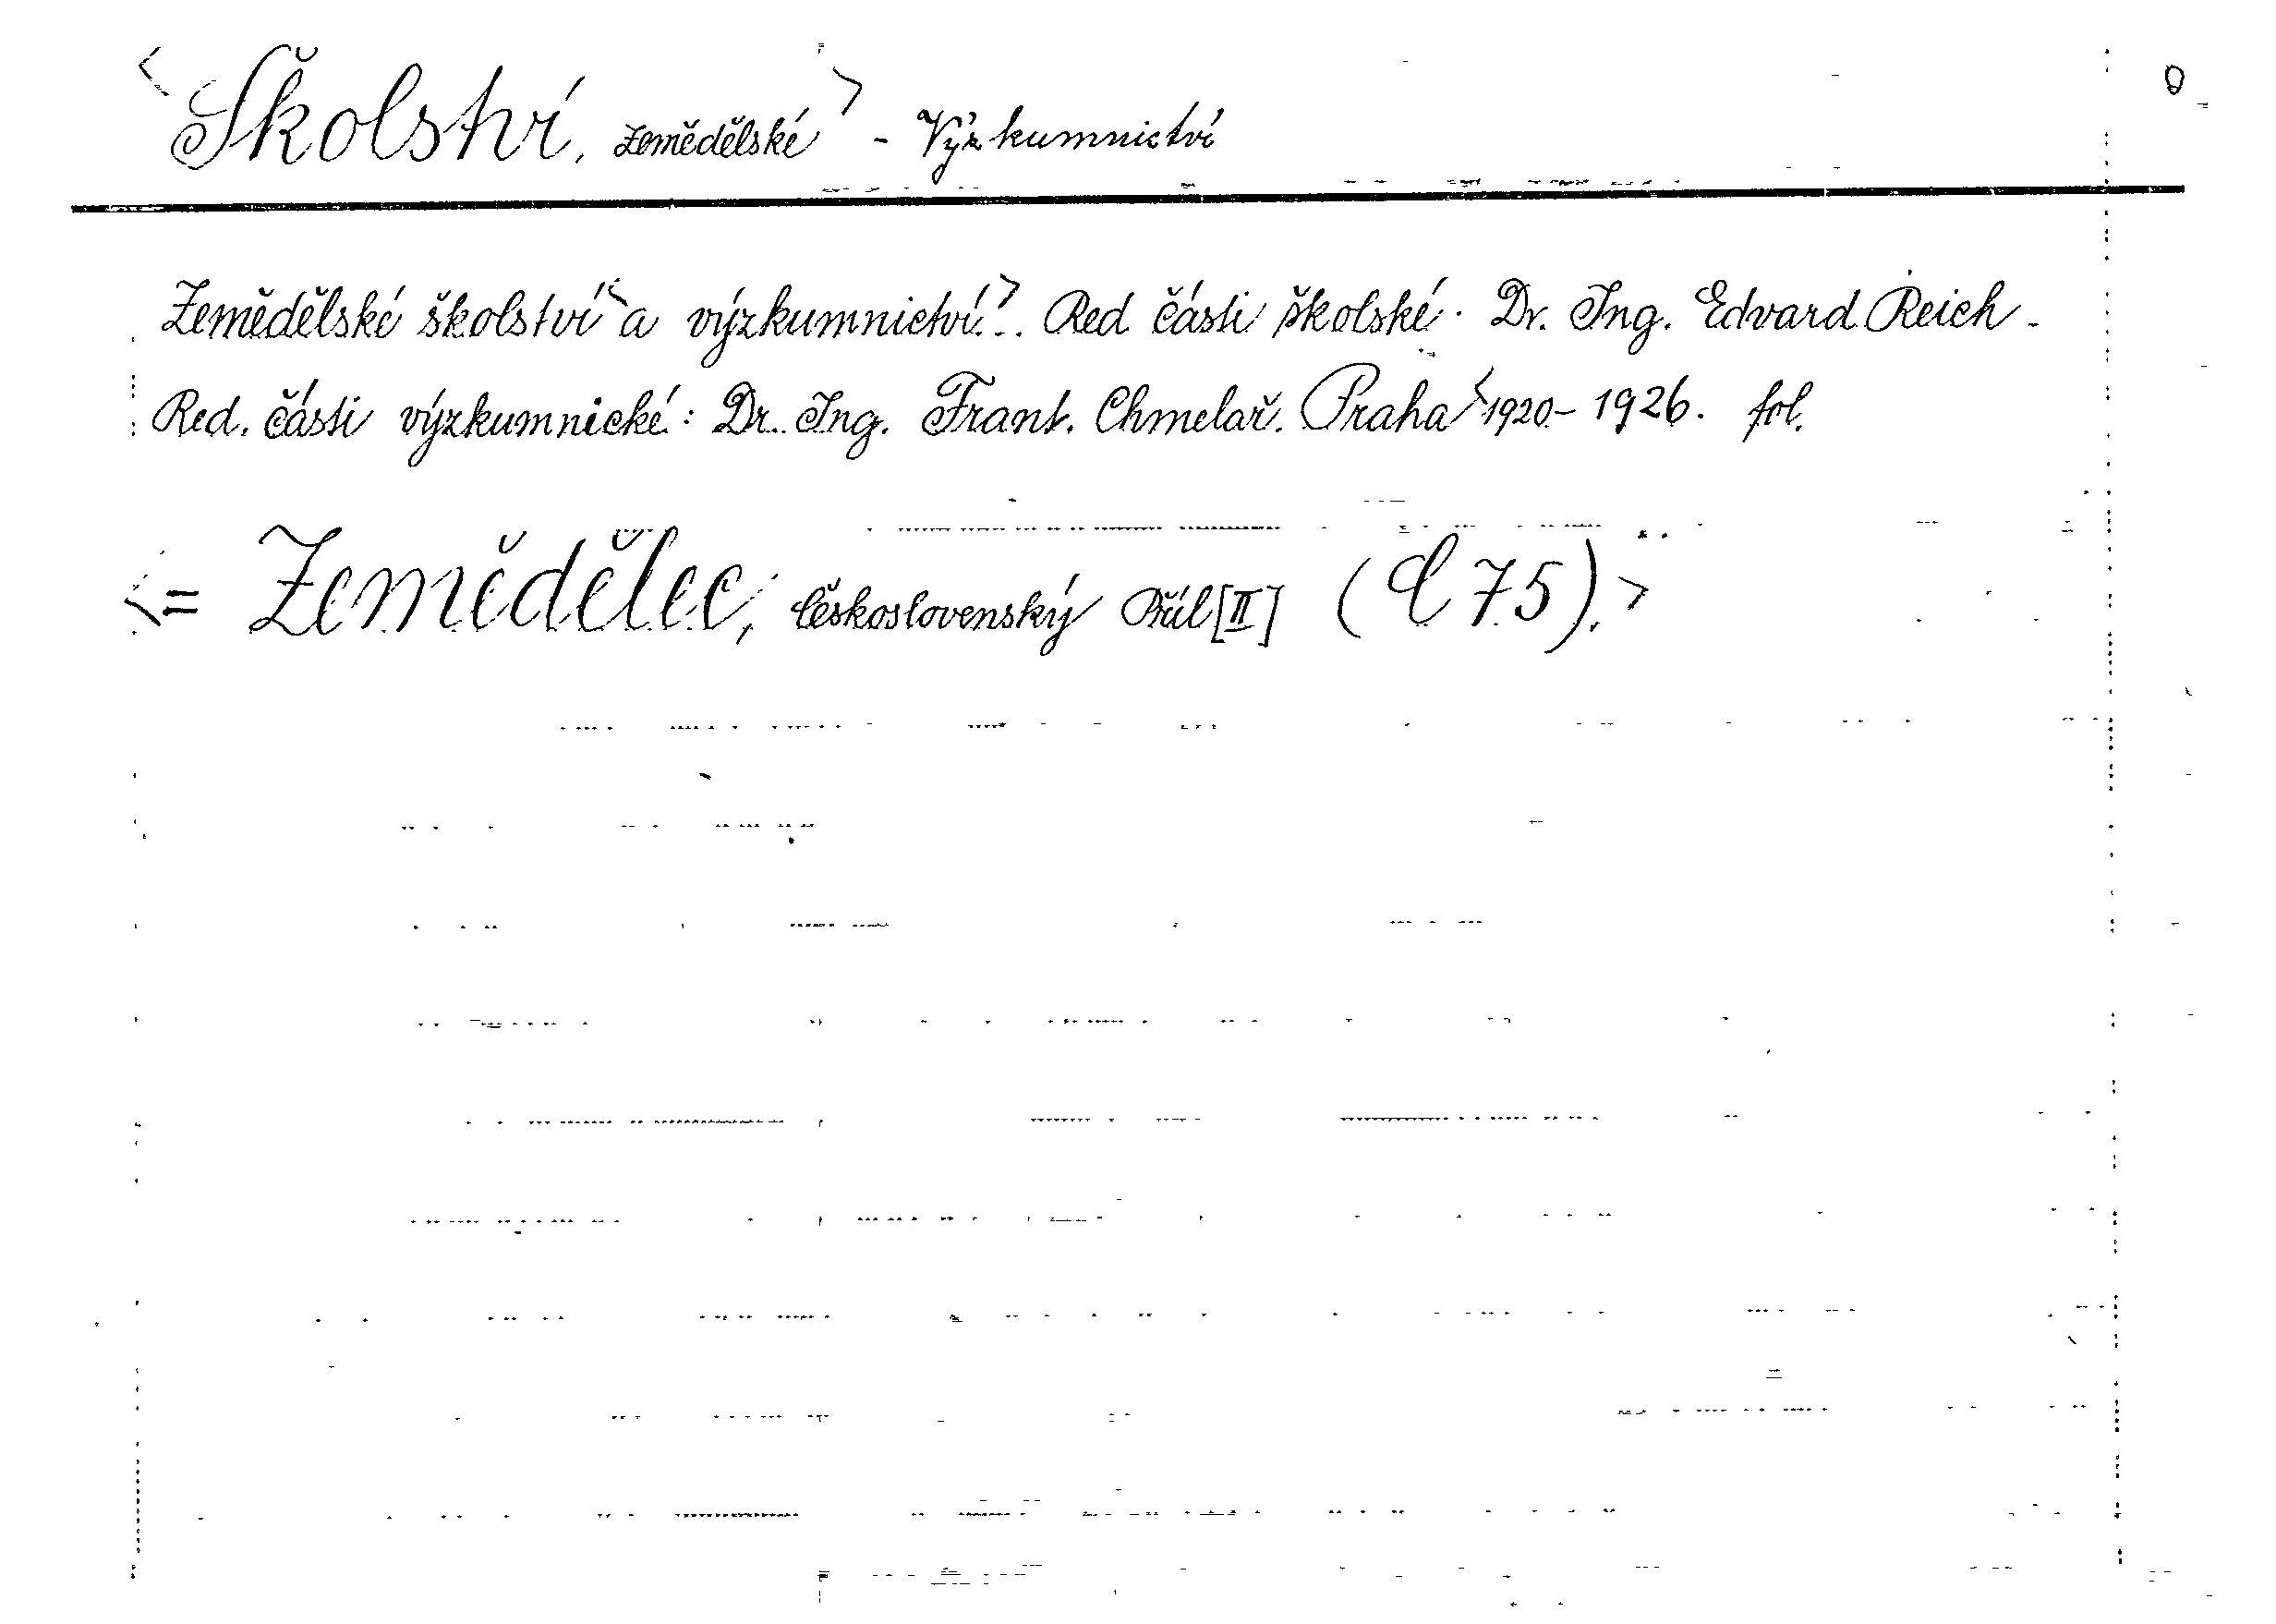 <Školství, zemědělské> - Výzkumnictví
Zemědělské školství <a výzkumnictví.> Red části školské: Dr. Ing. Edvard Reich -
Red. části výzkumnické: Dr. Ing. Frant. Chmelař. Praha <1920 - 1926. fol.
<= Zemědělec, československý Příl [II] (C 75).>